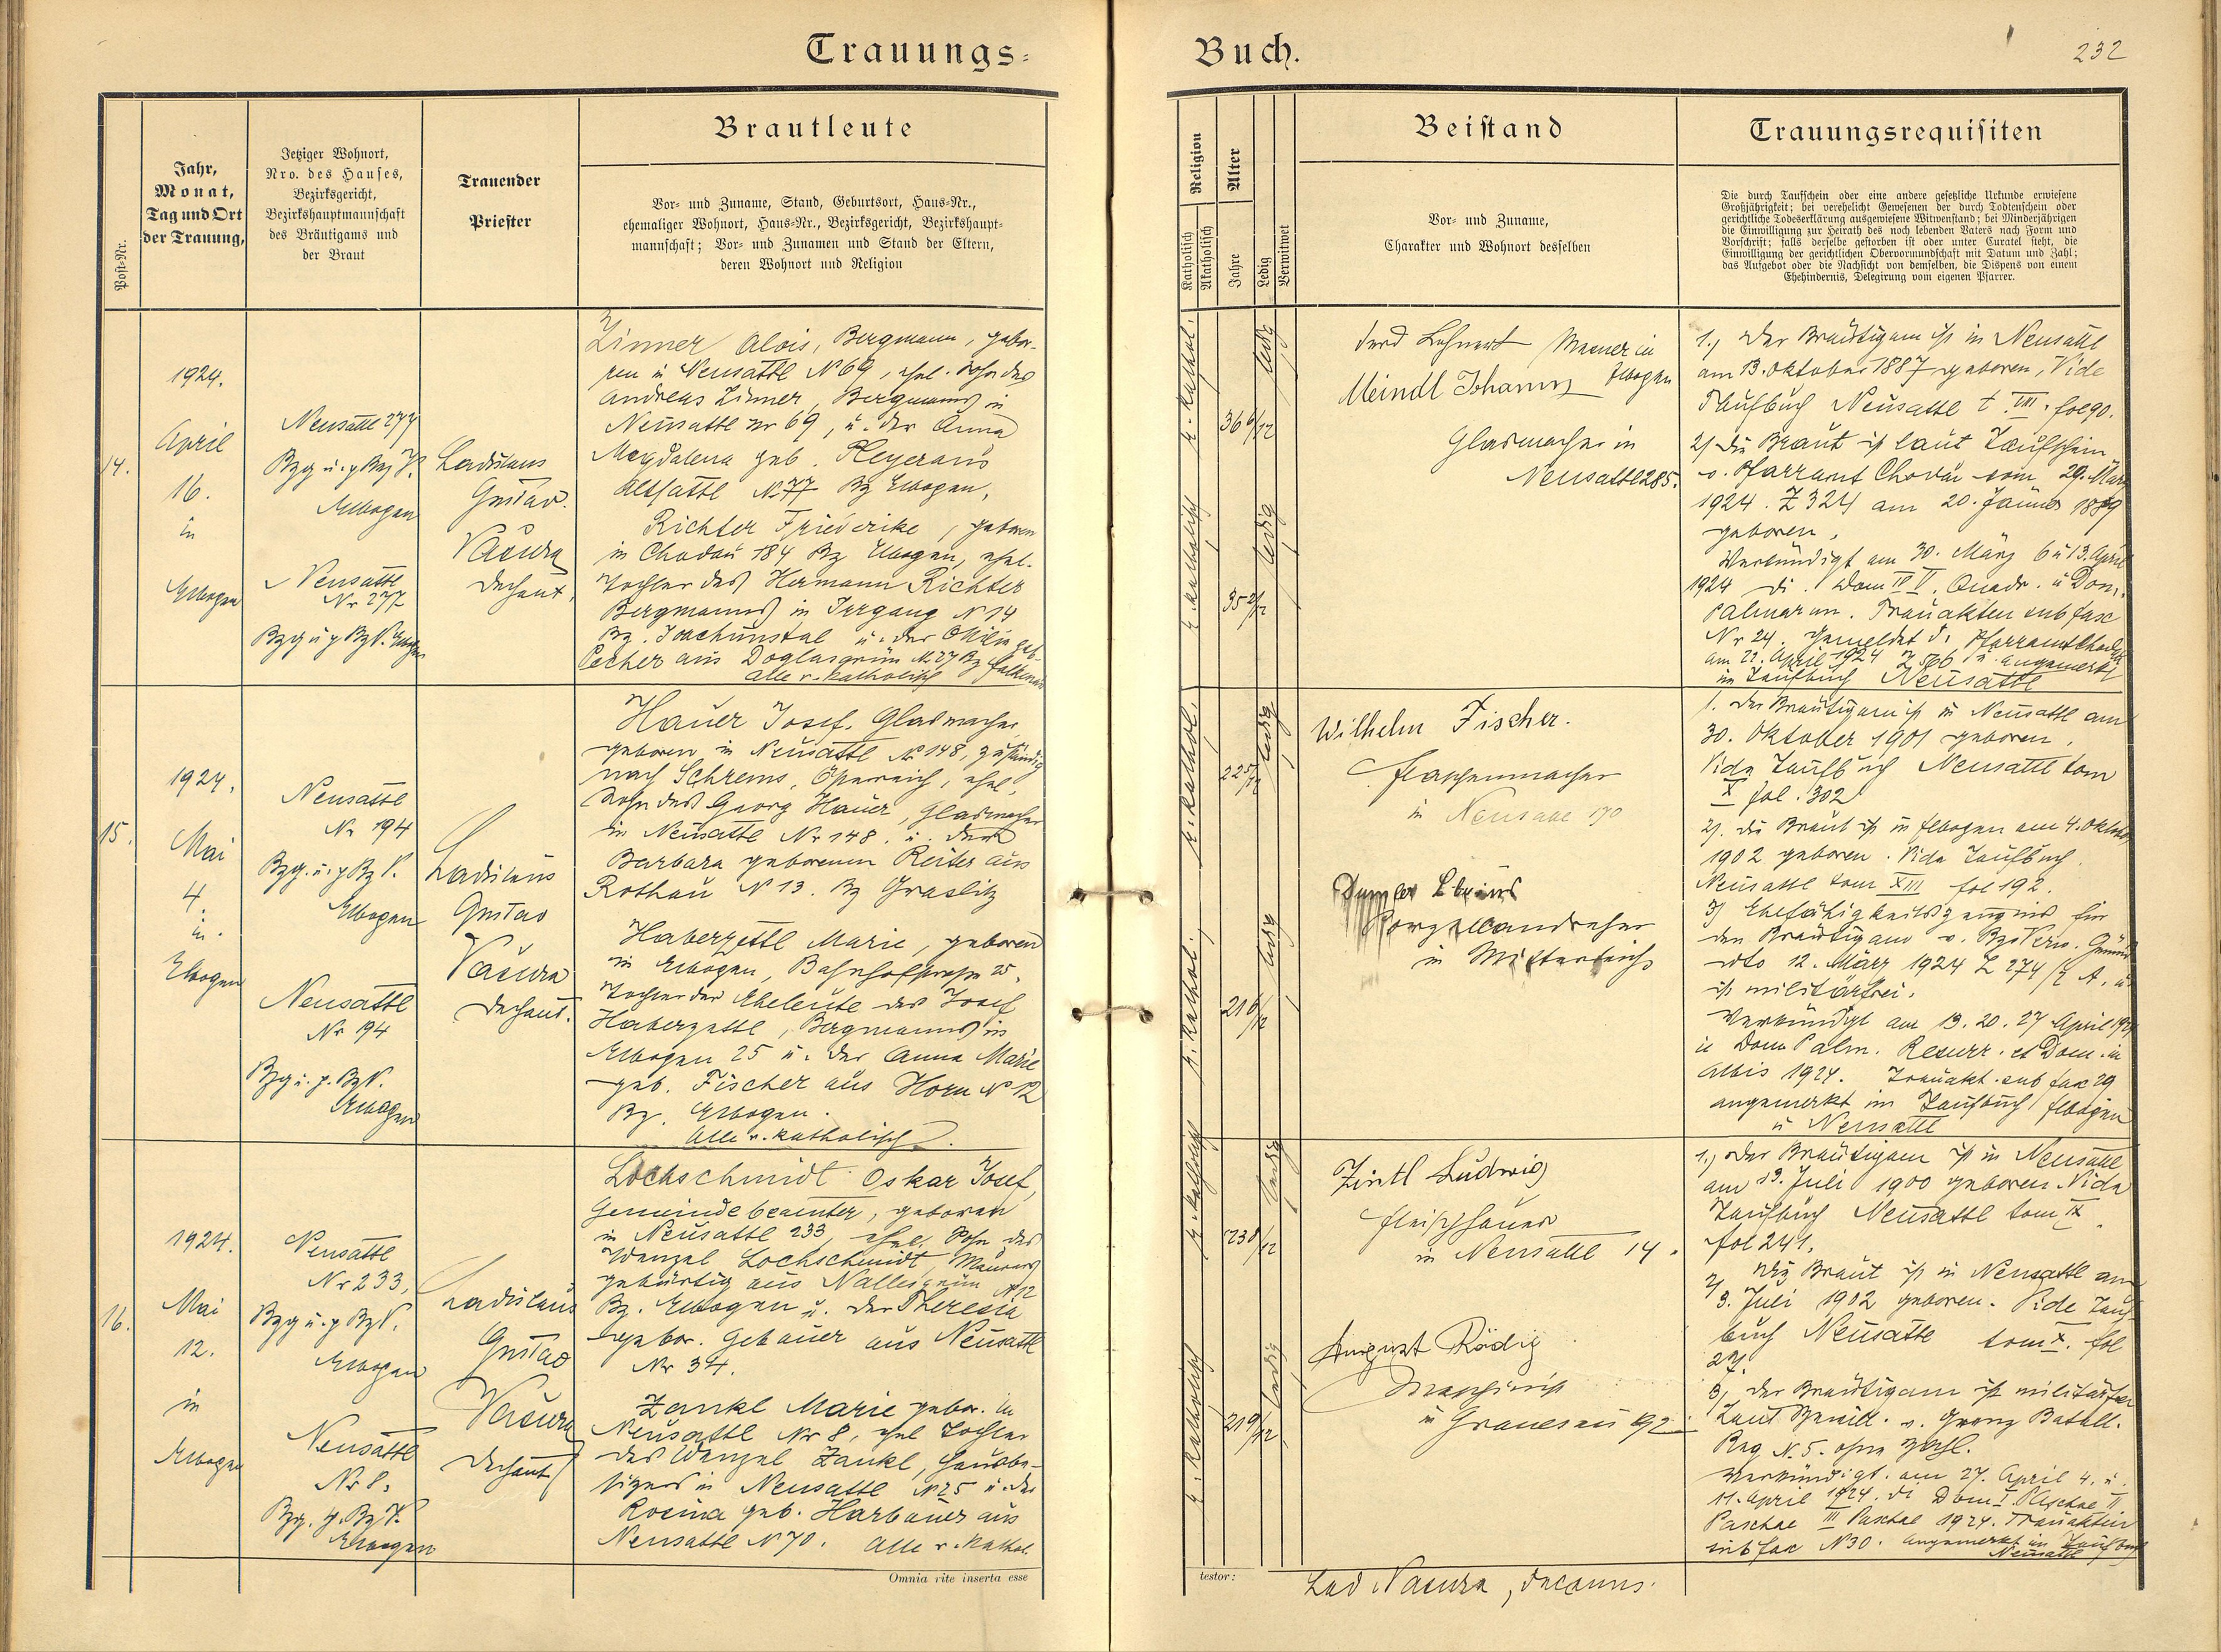 Trauungs-
Buch.
232
Post-Nr.
Jahr,
Monat,
Tag und Ort
der Trauung,
Jetziger Wohnort,
Nro. des Hauses,
Bezirksgericht,
Bezirkshauptmannschaft
des Bräutigams und
der Braut
Trauender
Priester
Brautleute
Vor- und Zuname, Stand, Geburtsort, Haus-Nr.,
ehemaliger Wohnort, Haus-Nr., Bezirksgericht, Bezirkshaupt-
mannschaft; Vor- und Zunamen und Stand der Eltern,
deren Wohnort und Religion
Religion
Katholisch
Akatholisch
Alter
Jahre
Ledig
Verwitwet
Beistand
Vor- und Zuname,
Charakter und Wohnort desselben
Trauungsrequisiten
Die durch Taufschein oder eine andere gesetzliche Urkunde erwiesene
Großjährigkeit; bei verehelicht Gewesenen der durch Todtenschein oder
gerichtliche Todeserklärung ausgewiesene Witwenstand; bei Minderjährigen
die Einwilligung zur Heirath des noch lebenden Vaters nach Form und
Vorschrift; falls derselbe gestorben ist oder unter Curatel steht, die
Einwilligung der gerichtlichen Obervormundschaft mit Datum und Zahl;
das Aufgebot oder die Nachsicht von demselben, die Dispens von einem
Ehehindernis, Delegirung vom eigenen Pfarrer.
14.
1924.
April
16.
in
Elbogen
Neusattl 277
Bzg u. p Bz V.
Elbogen
Neusattl
Nr 277
Bzg u p Bz V. Elbogen
Ladislaus
Gustav
Vačura
Dechant.
Zinner Alois, Bergmann, gebo-
ren in Neusattl N 69, ehel. Sohn des
Andreas Zinner, Bergmanns in
Neusattl Nr 69, u. der Anna
Magdalena geb.
Altsattl N. 77 Bz Elbogen,
Richter Friederike, geboren
in Chodau 184 Bz Elbogen, ehel.
Tochter des Hermann Richter
Bergmanns in Irrgang N 14
Bz. Joachimstal u. der Ottilie geb.
aus Doglasgrün N. 27 Bz Falkenau
Alle r. katholisch
r. kathol.
36 6/12
ledig
r. katholisch
35 2/12
ledig
Ferd Lehnert in
Meindl Johann Elbogen
Glasmacher in
Neusattl 285.
1., Der Bräutigam ist in Neusattl
am 13. Oktober 1887 geboren, Vide
Taufbuch Neusattl t. VIII. fol 90.
2) Die Braut ist laut Taufschein
v. Pfarramt Chodau vom 29. März
1924. Z 324 am 20. Jänner 1889
geboren.
Verkündigt am 30. März 6 u 13. April
1924 di. Dom IV V. Quadr. u Dom.
Palmarum. Trauakten sub fasc
Nr 24. Gemeldet d. Pfarramt Chodau
am 22. April 1924 Z 566 u. angemerkt
im Taufbuch Neusattl
15.
1924.
Mai
4.
in
Elbogen
Neusattl
Nr 194
Bzg. u. p Bz V.
Elbogen
Neusattl
Nr 194
Bzg u. p. Bz V.
Elbogen
Ladislaus
Gustav
Vačura
Dechant.
Hauer Josef, Glasmacher
geboren in Neusattl N 148, zuständig
nach Schrems, Österreich, ehel.
Sohn des Georg Hauer, Glasmacher
in Neusattl Nr 148. u. der
Barbara geborenen Reiter aus
Rothau N 13. Bz Graslitz
Haberzettl Marie, geboren
in Elbogen, Bahnhofstrasse 25.
Tochter der Eheleute des Josef
Haberzettl, Bergmanns in
Elbogen 25 u. der Anna Marie
geb. Fischer aus Horn N 12
Bz. Elbogen.
Alle r. katholisch.
r. kathol.
22 5/12
ledig
r. kathol.
21 6/12
ledig
Wilhelm Fischer.
Flaschenmacher
in Neusattl 170
Porzellandreher
in Mitterteich
1. Der Bräutigam ist in Neusattl am
30. Oktober 1901 geboren.
Vide Taufbuch Neusattl tom
X fol. 302
2). Die Braut ist in Elbogen am 4. Oktober
1902 geboren. Vide Taufbuch
Neusattl tom XIII fol 192.
3) Ehefähigkeitszeugnis für
den Bräutigam v. Bz. Verw. Gmünd
dto 12. März 1924 Z 274/2 A, u
ist militärfrei.
Verkündigt am 13. 20. 27 April 1924
ie Dom Palm. Resurr. et Dom. in
Albis 1924. Trauakt. sub fax 29
angemerkt im Taufbuch Elbogen
u Neusattl
16.
1924.
Mai
12.
in
Elbogen
Neusattl
Nr 233,
Bzg u. p Bz V.
Elbogen
Neusattl
Nr 8.
Bzg. p. Bz V.
Elbogen
Ladislaus
Gustav
Vačura
Dechant
Lochschmidt Oskar Josef,
Gemeindebeamter, geboren
in Neusattl 233, ehel. Sohn des
Wenzel Lochschmidt, Maurers
gebürtig aus Nallesgrün N 12
Bz. Elbogen u. der Theresia
gebor. Gebauer aus Neusattl
Nr 34.
Zankl Marie gebor. in
Neusattl Nr 8, ehel Tochter
des Wenzel Zankl, Hausbe-
sitzers in Neusattl N 25 u. der
Rosina geb. Harbauer aus
Neusattl N 70. Alle r. kathol.
r. katholisch
23 8/12
ledig
r. katholisch
21 9/12
ledig
Zintl Ludwig
Fleischhauer
in Neusattl 14.
August Rödig
Maschinist
in Granesau 92
1., Der Bräutigam ist in Neusattl
am 13. Juli 1900 geboren. Vide
Taufbuch Neusattl tom IX
fol 241.
2) Die Braut ist in Neusattl am
3. Juli 1902 geboren. Vide Tauf-
buch Neusattl tom X. fol
27.
3, Der Bräutigam ist militärfrei
Laut v. Grenz Batall.
Reg N. 5. ohne Zahl.
Verkündigt. am 27. April 4. u.
11. April 1924. di Dom I. Paschae II
Paschae III Paschae 1924. Trauakten
sub fax N 30. angemerkt im Taufbuch
Neusattl
Omnia rite inserta esse
testor:
Lad Vačura, decanus.